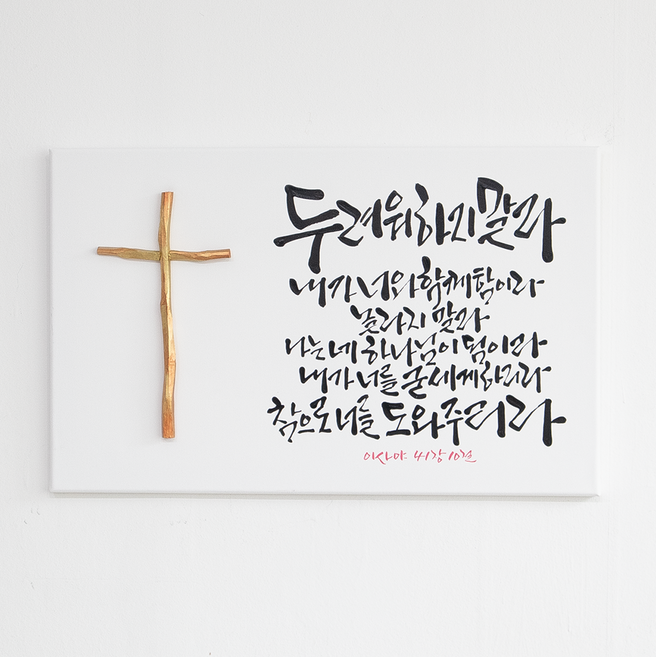 두려워하지말라
내가 너와 함께함이라
놀라지 말라
나는 네 하나님이 됨이라
내가 너를 굳세게하리라
참으로 너를 도와주리라
이사야 41장 10절